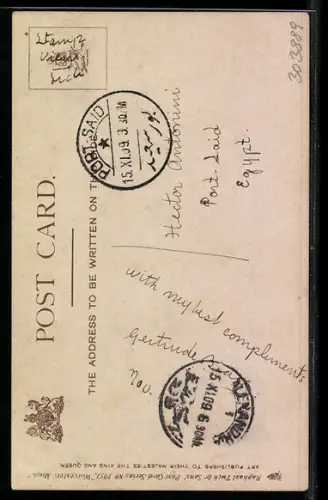 Stamp
View
Side
303889
POST CARD.
THE ADDRESS TO BE WRITTEN ON THIS SIDE
PORT-SAID
15.XI.09.3 30.M
بور سعيد
Hector Antonini
Port-Said
Egypt.
with my best compliments
Gertrude
ALEXANDRI
15.XI.09.6
Raphael Tuck & Sons' Post Card Series No 1057, "Worcester, Mass."
ART PUBLISHERS TO THEIR MAJESTIES THE KING AND QUEEN.